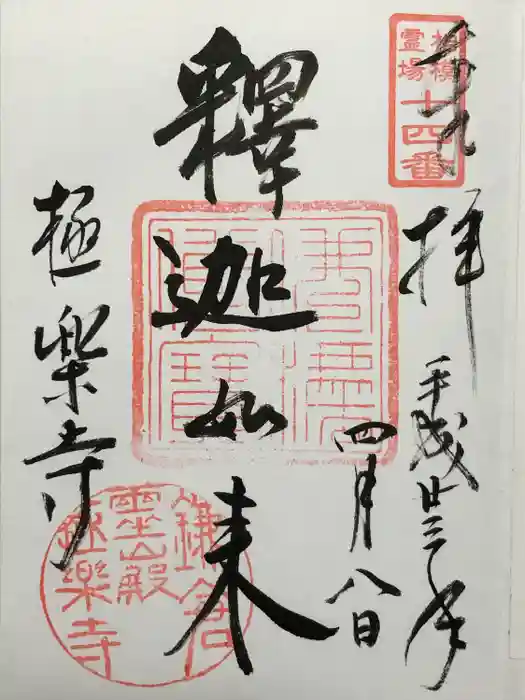 奉拝
相模
霊場
十四番
平成廿三年
四月八日
釋迦如来
佛法
僧寳
極楽寺
鎌倉
霊山殿
極楽寺